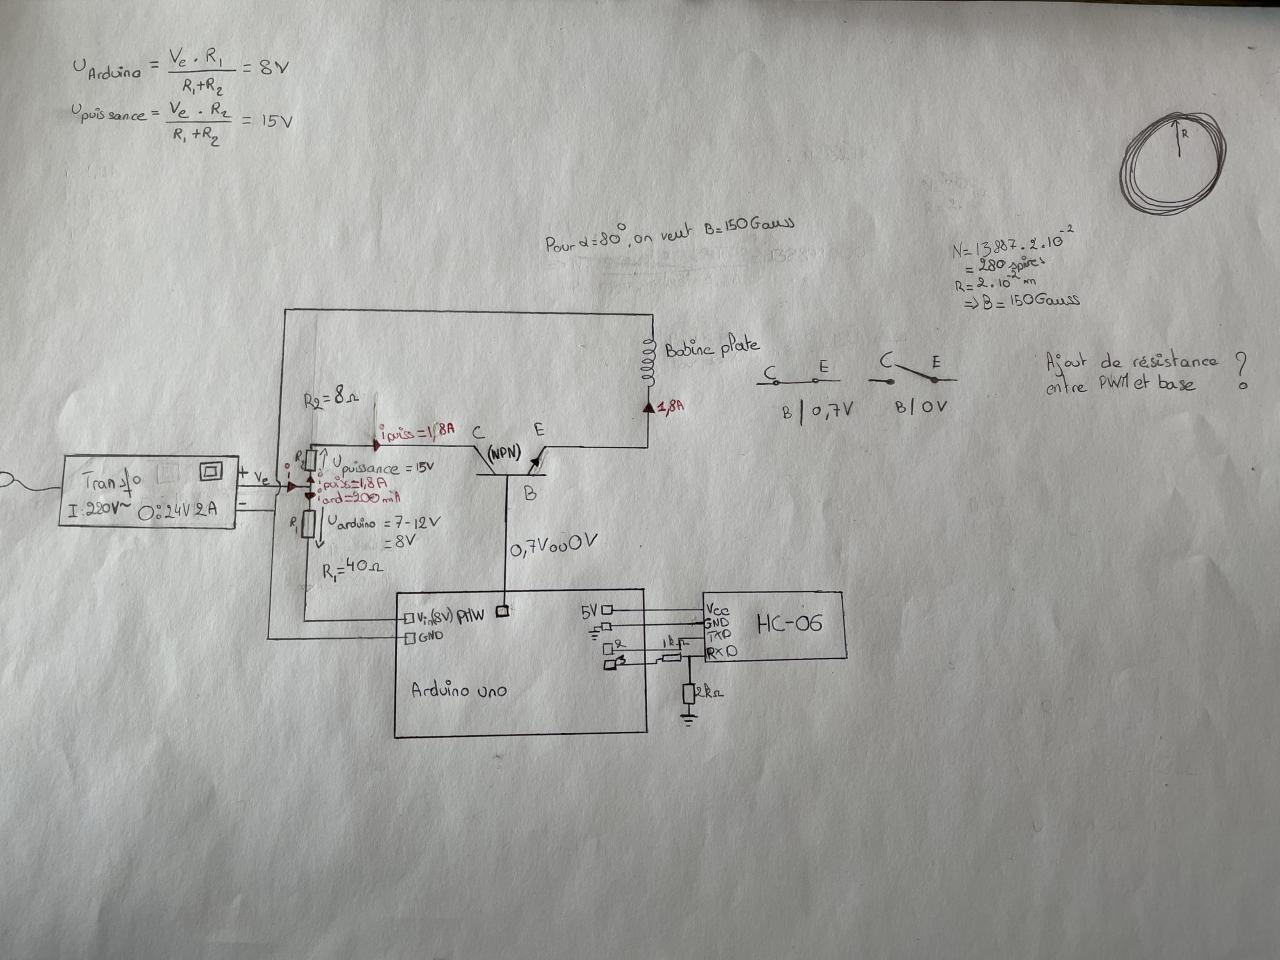 U Arduino = Ve . R1 / R1+R2 = 8V
U puissance = Ve . R2 / R1+R2 = 15V
R
Pour α=80°, on veut B=150Gauss
N=13887.2.10⁻²
= 280 spires
R=2.10⁻² m
=> B=150Gauss
Bobine plate
C E
B | 0,7V
C E
B | 0V
Ajout de résistance
entre PWM et base ?
R2=8Ω
i puiss=1,8A
C
E
(NPN)
B
1,8A
Transfo
I:220V~ O:24V 2A
+ Ve
-
i
R2
U puissance = 15V
i puis=1,8A
i ard=200mA
R1
U arduino = 7-12V
= 8V
R1=40Ω
0,7V ou 0V
Vin(8V) PHW
GND
5V
2
3
1kΩ
2kΩ
Vcc
GND
TXD
RXD
HC-06
Arduino uno